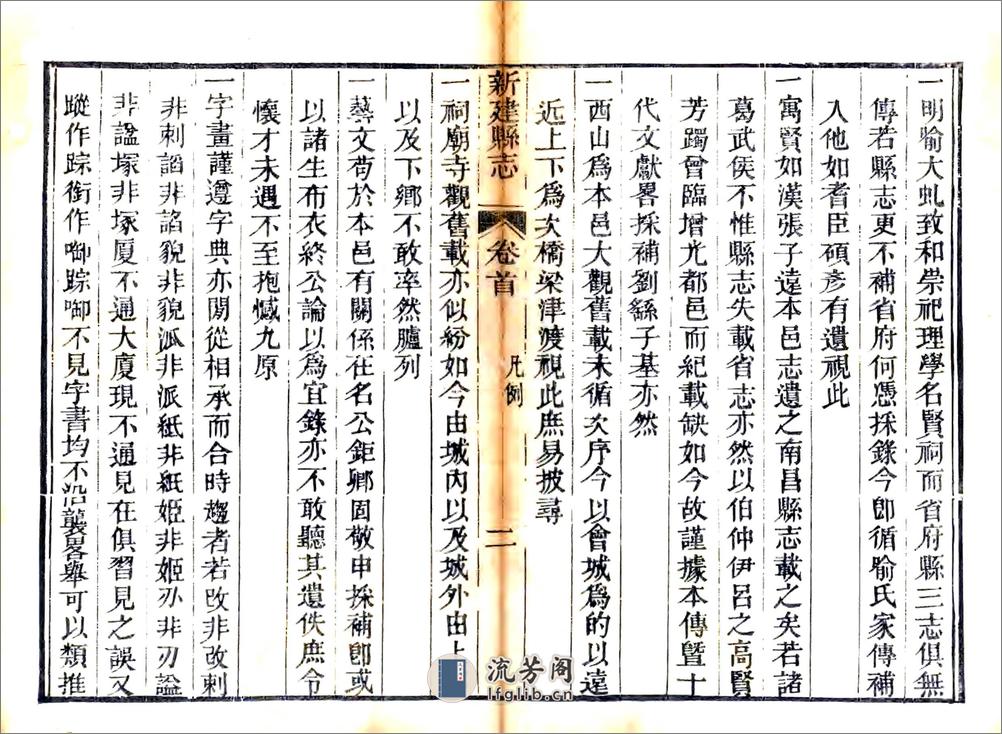 一明喻大虬致和崇祀理學名賢祠而省府縣三志俱無
傳若縣志更不補省府何憑採錄今卽循喻氏家傳補
入他如耆臣碩彥有遺視此
一寓賢如漢張子遠本邑志遺之南昌縣志載之矣若諸
葛武侯不惟縣志失載省志亦然以伯仲伊呂之高賢
芳躅曾臨增尤都邑而紀載缺如今故謹據本傳曁十
代文獻畧採補劉繇子基亦然
一西山爲本邑大觀舊載未循次序今以會城爲的以遠
近上下爲次橋梁津渡視此庶易披尋
新建縣志
卷首
凡例
二
一祠廟寺觀舊載亦似紛如今由城內以及城外由上
以及下鄉不敢率然臚列
一藝文苟於本邑有關係在名公鉅卿固敬申採補卽或
以諸生布衣終公論以爲宜錄亦不敢聽其遺佚庶令
懷才未遇不至抱憾九原
一字畫謹遵字典亦間從相承而合時趨者若攺非改刺
非剌謟非諂貌非貎泒非派紙非紙姬非姬刅非刃謚
非諡塚非塚厦不通大廈現不通見在俱習見之誤又
蹤作踪銜作啣踪啣不見字書均不沿襲畧舉可以類推
流芳阁
lfglib.cn